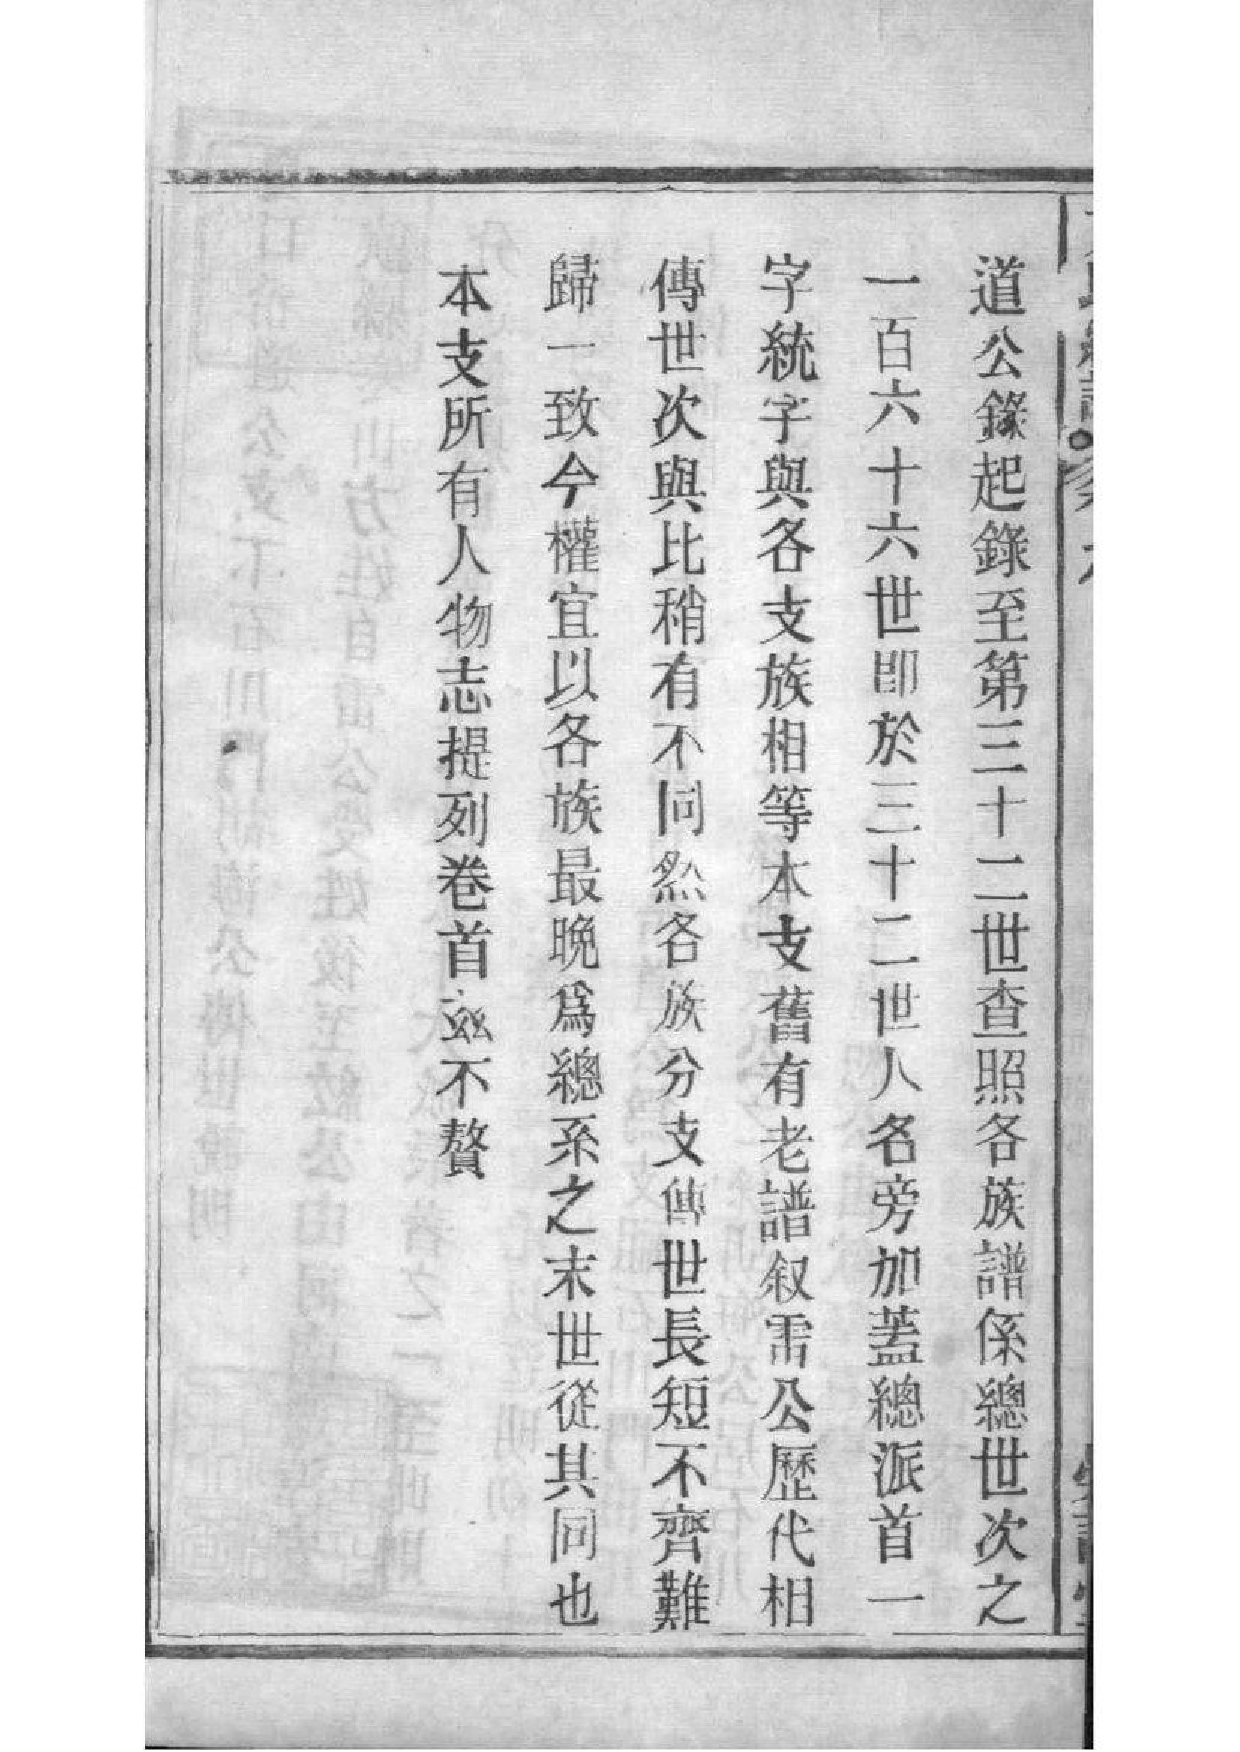 道公錄起錄至第三十二世查照各族譜係總世次之
一百六十六世即於三十二世人名旁加蓋總派首一
字統字與各支族相等本支舊有老譜叙雷公歷代相
傳世次與比稍有不同然各族分支傳世長短不齊難
歸一致今權宜以各族最晚爲總系之末世從其同也
本支所有人物志提列卷首茲不贅